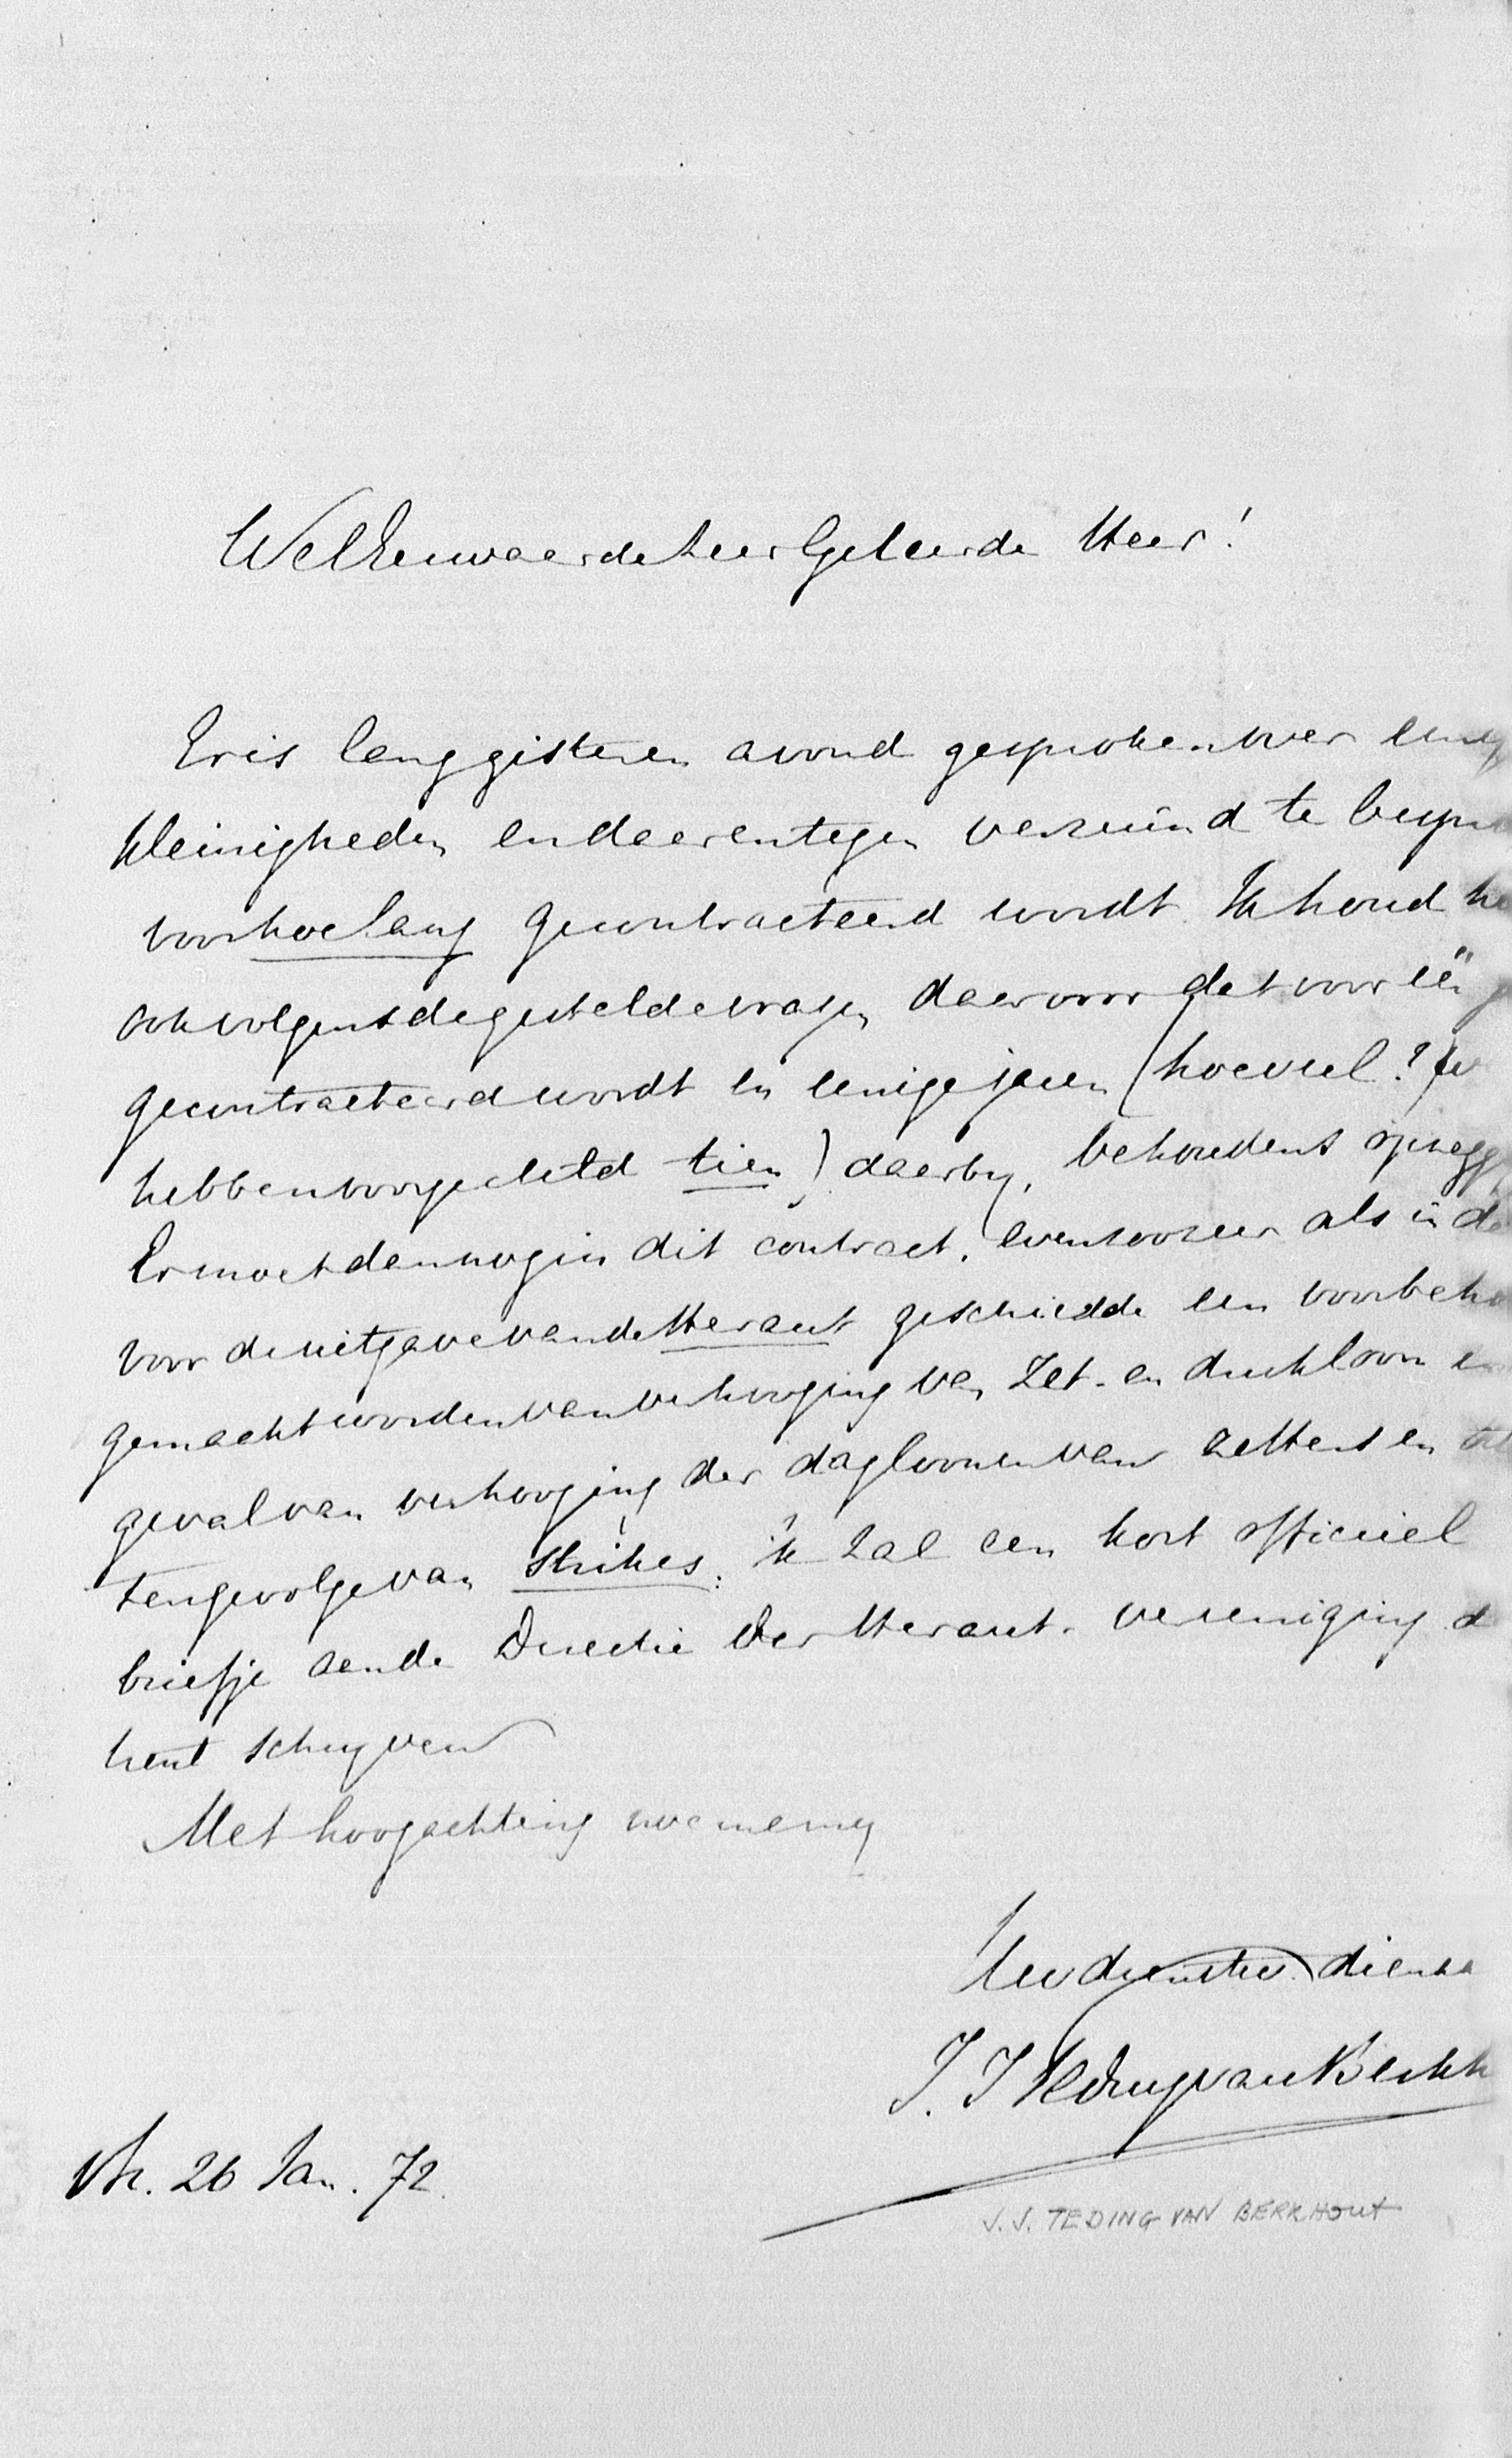 WelEerwaarde Zeer Geleerde Heer!
Er is lang gisteren avond gesproken over
kleinigheden en daarentegen verzuimd te
voor hoe lang gecontracteerd wordt. Ik houd he
ook volgens de gestelde vragen daarvoor dat voor één
gecontracteerd wordt en eenige jaren (hoeveel?
hebben voorgesteld tien) daarby, behoudens opzegg
Er moet dan nog in dit contract, evenzoozeer als in de
voor de uitgave van de Heraut geschiedde een voorbeho
gemaakt worden van verhooging van Zet- en drukloon
geval van verhooging der dagloonen van zetters en
tengevolge van Strikes: ik zal een kort officieel
briefje aan de Directie der Heraut-vereeniging
schryven
Met hoogachting noem my
Uw dienstw. diena
J. J. Teding van Berkh
26 Jan. 72.
J. J. TEDING VAN BERKHOUT